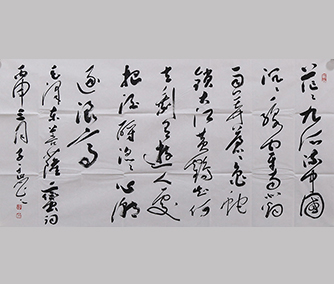 茫茫九派流中国
沉沉一线穿南北烟
雨莽苍苍龟蛇
锁大江黄鹤知何
去剩有游人处
把酒酹滔滔心潮
逐浪高
毛泽东菩萨蛮词
丙申三月